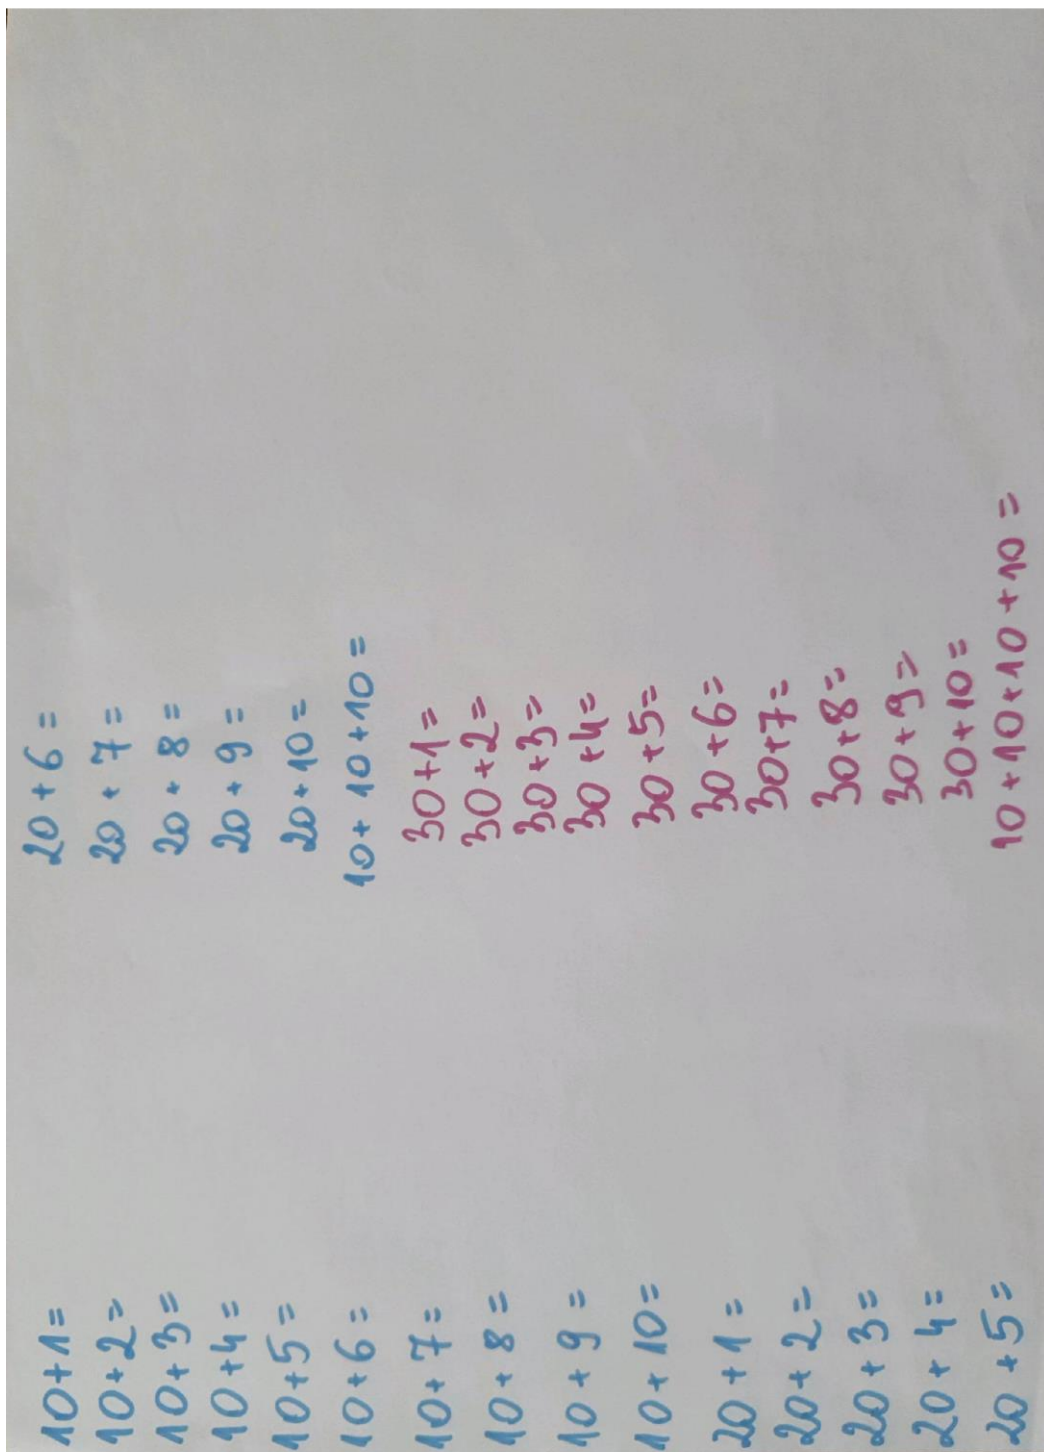 10+1=
10+2=
10+3=
10+4=
10+5=
10+6=
10+7=
10+8=
10+9=
10+10=
20+1=
20+2=
20+3=
20+4=
20+5=
20+6=
20+7=
20+8=
20+9=
20+10=
10+10+10=
30+1=
30+2=
30+3=
30+4=
30+5=
30+6=
30+7=
30+8=
30+9=
30+10=
10+10+10+10=